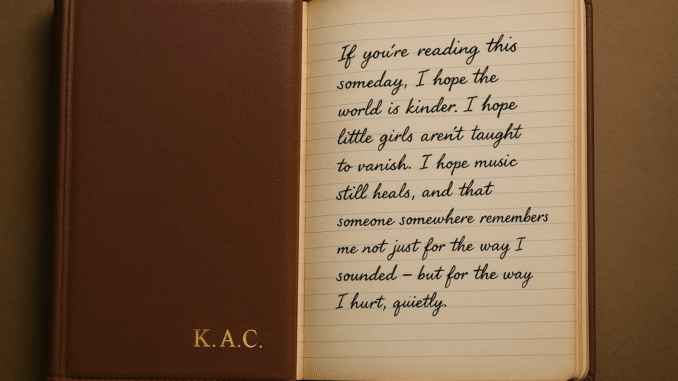 If you're reading this
someday, I hope the
world is kinder. I hope
little girls aren't taught
to vanish. I hope music
still heals, and that
someone somewhere remembers
me not just for the way I
sounded – but for the way
I hurt, quietly.
K.A.C.